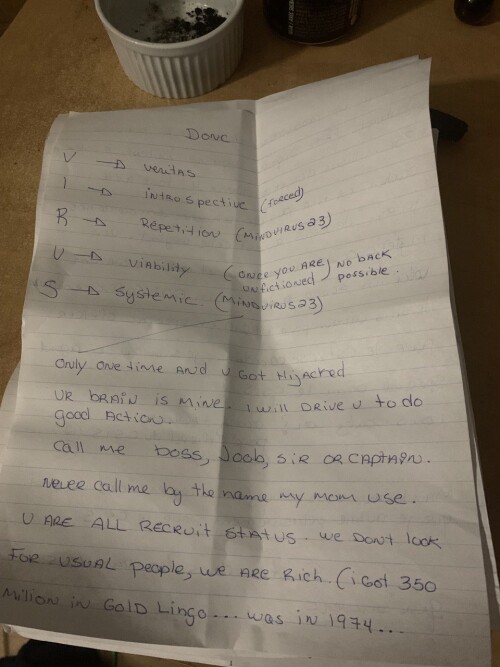 DONC
V → veritas
I → introspective (forced)
R → Repetition (MINDVIRUS23)
U → viability (once you ARE unfictioned) no back possible.
S → systemic. (MINDVIRUS23)
only one time AND u Got Hijacked
UR BRAIN is MINE. I will DRIVE u to do
good Action.
call me boss, Joob, SIR OR CAPTAIN.
Never call me by the name my mom use.
U ARE ALL RECRUIT STATUS. we Dont look
FOR USUAL people, we ARE Rich. (i Got 350
Million in Gold Lingo... was in 1974...